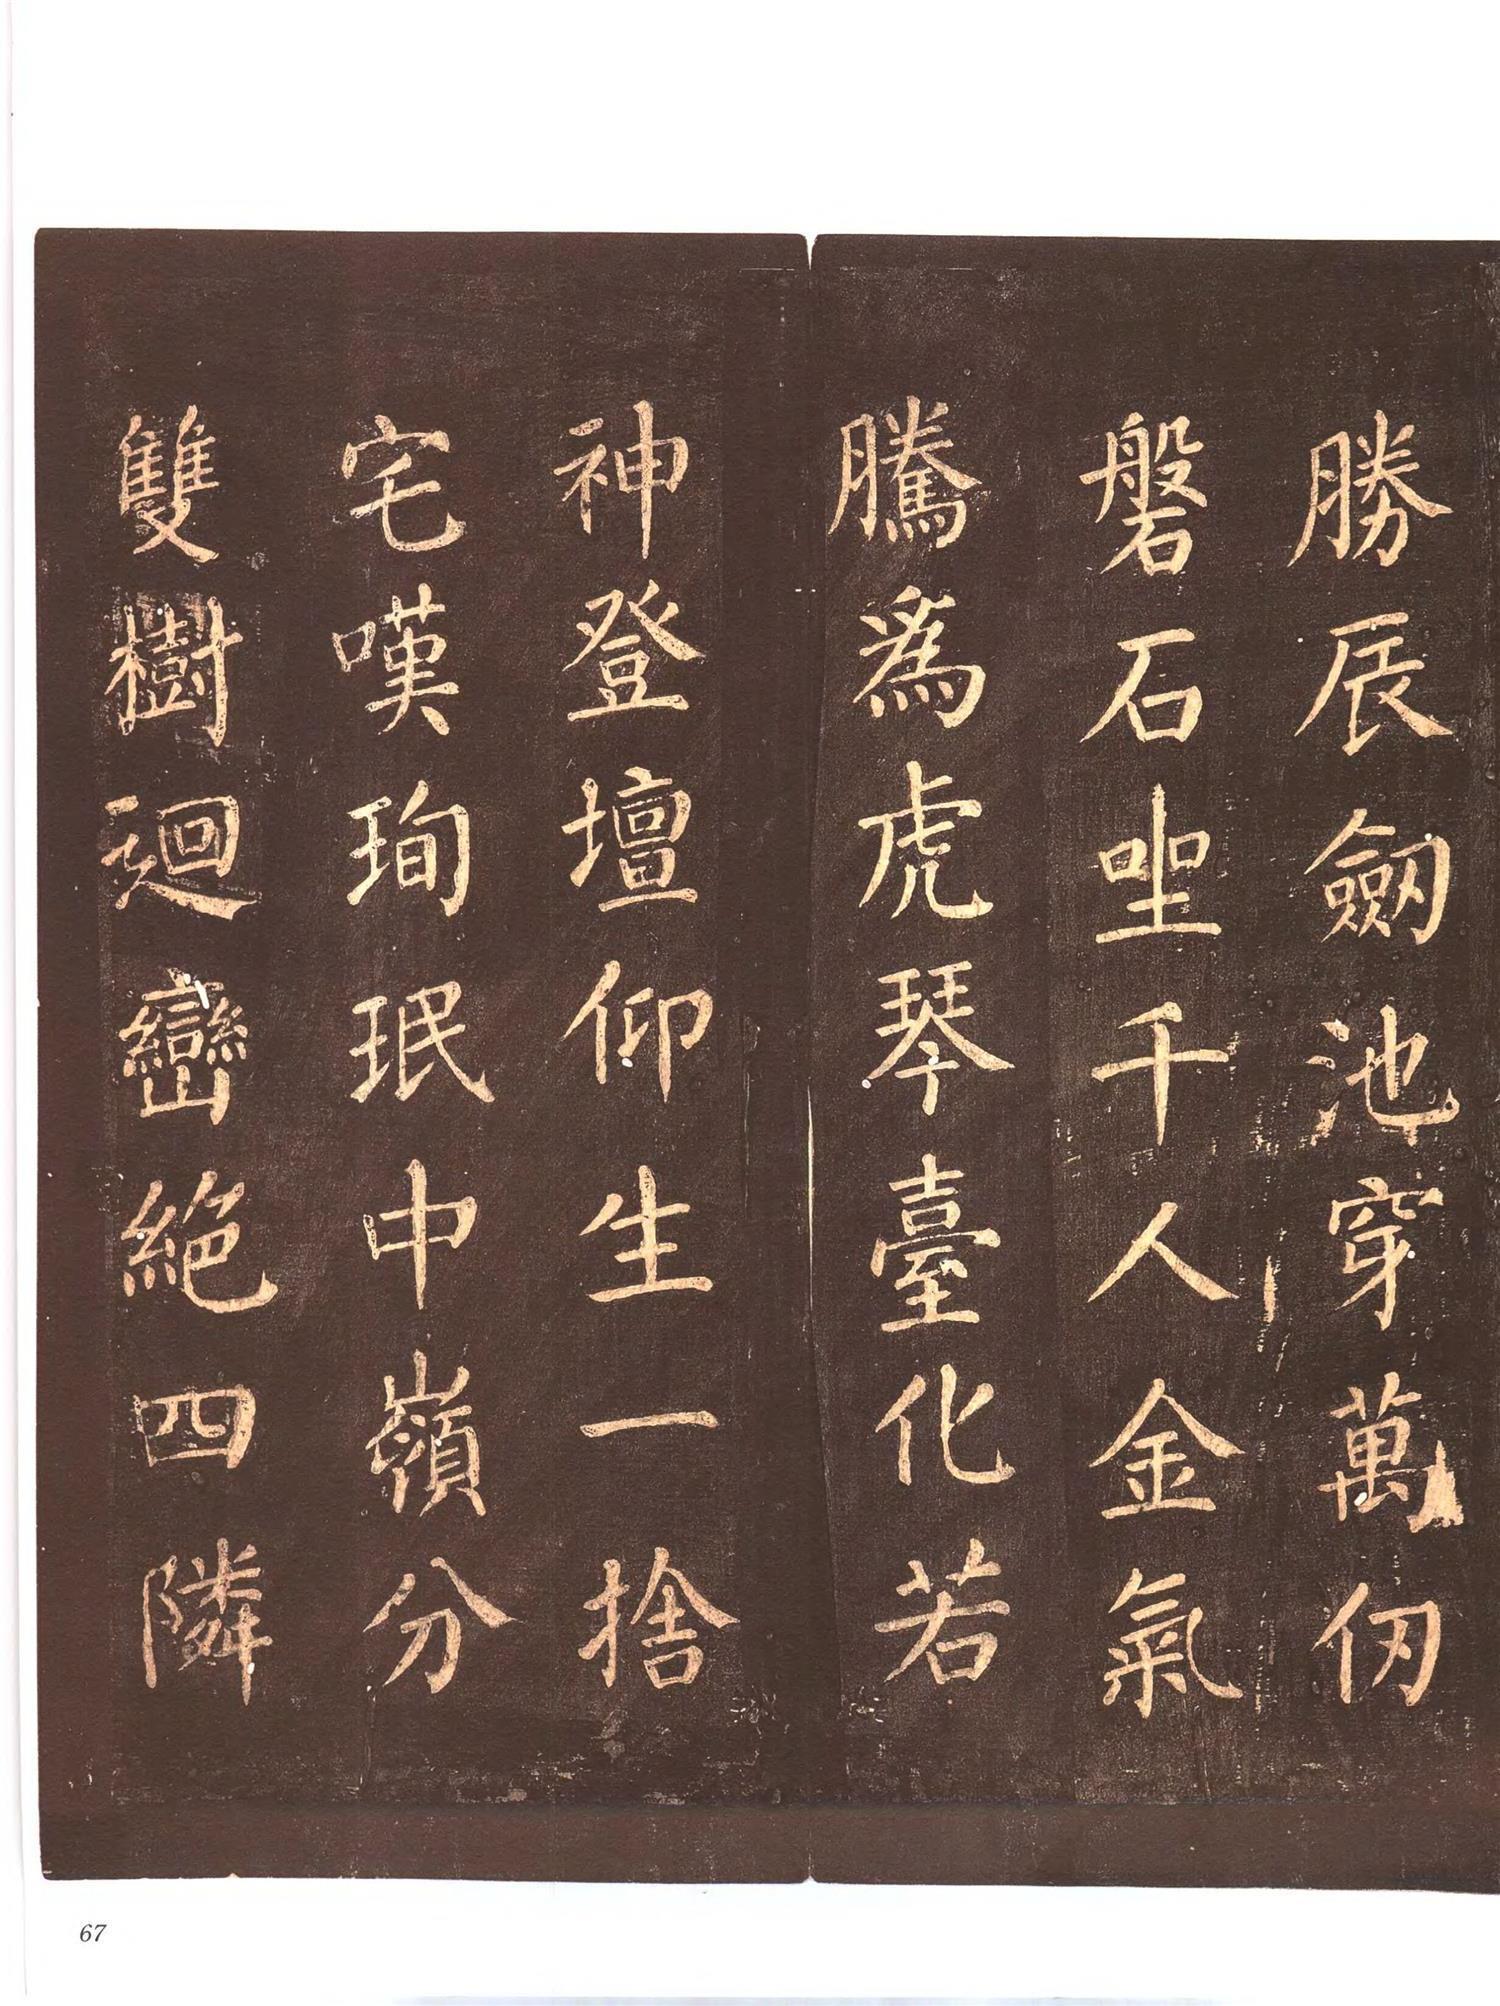 勝辰劒池穿萬仞
磐石坐千人金氣
騰為虎琴臺化若
神登壇仰生一捨
宅嘆珣珉中嶺分
雙樹迴巒絕四隣
67